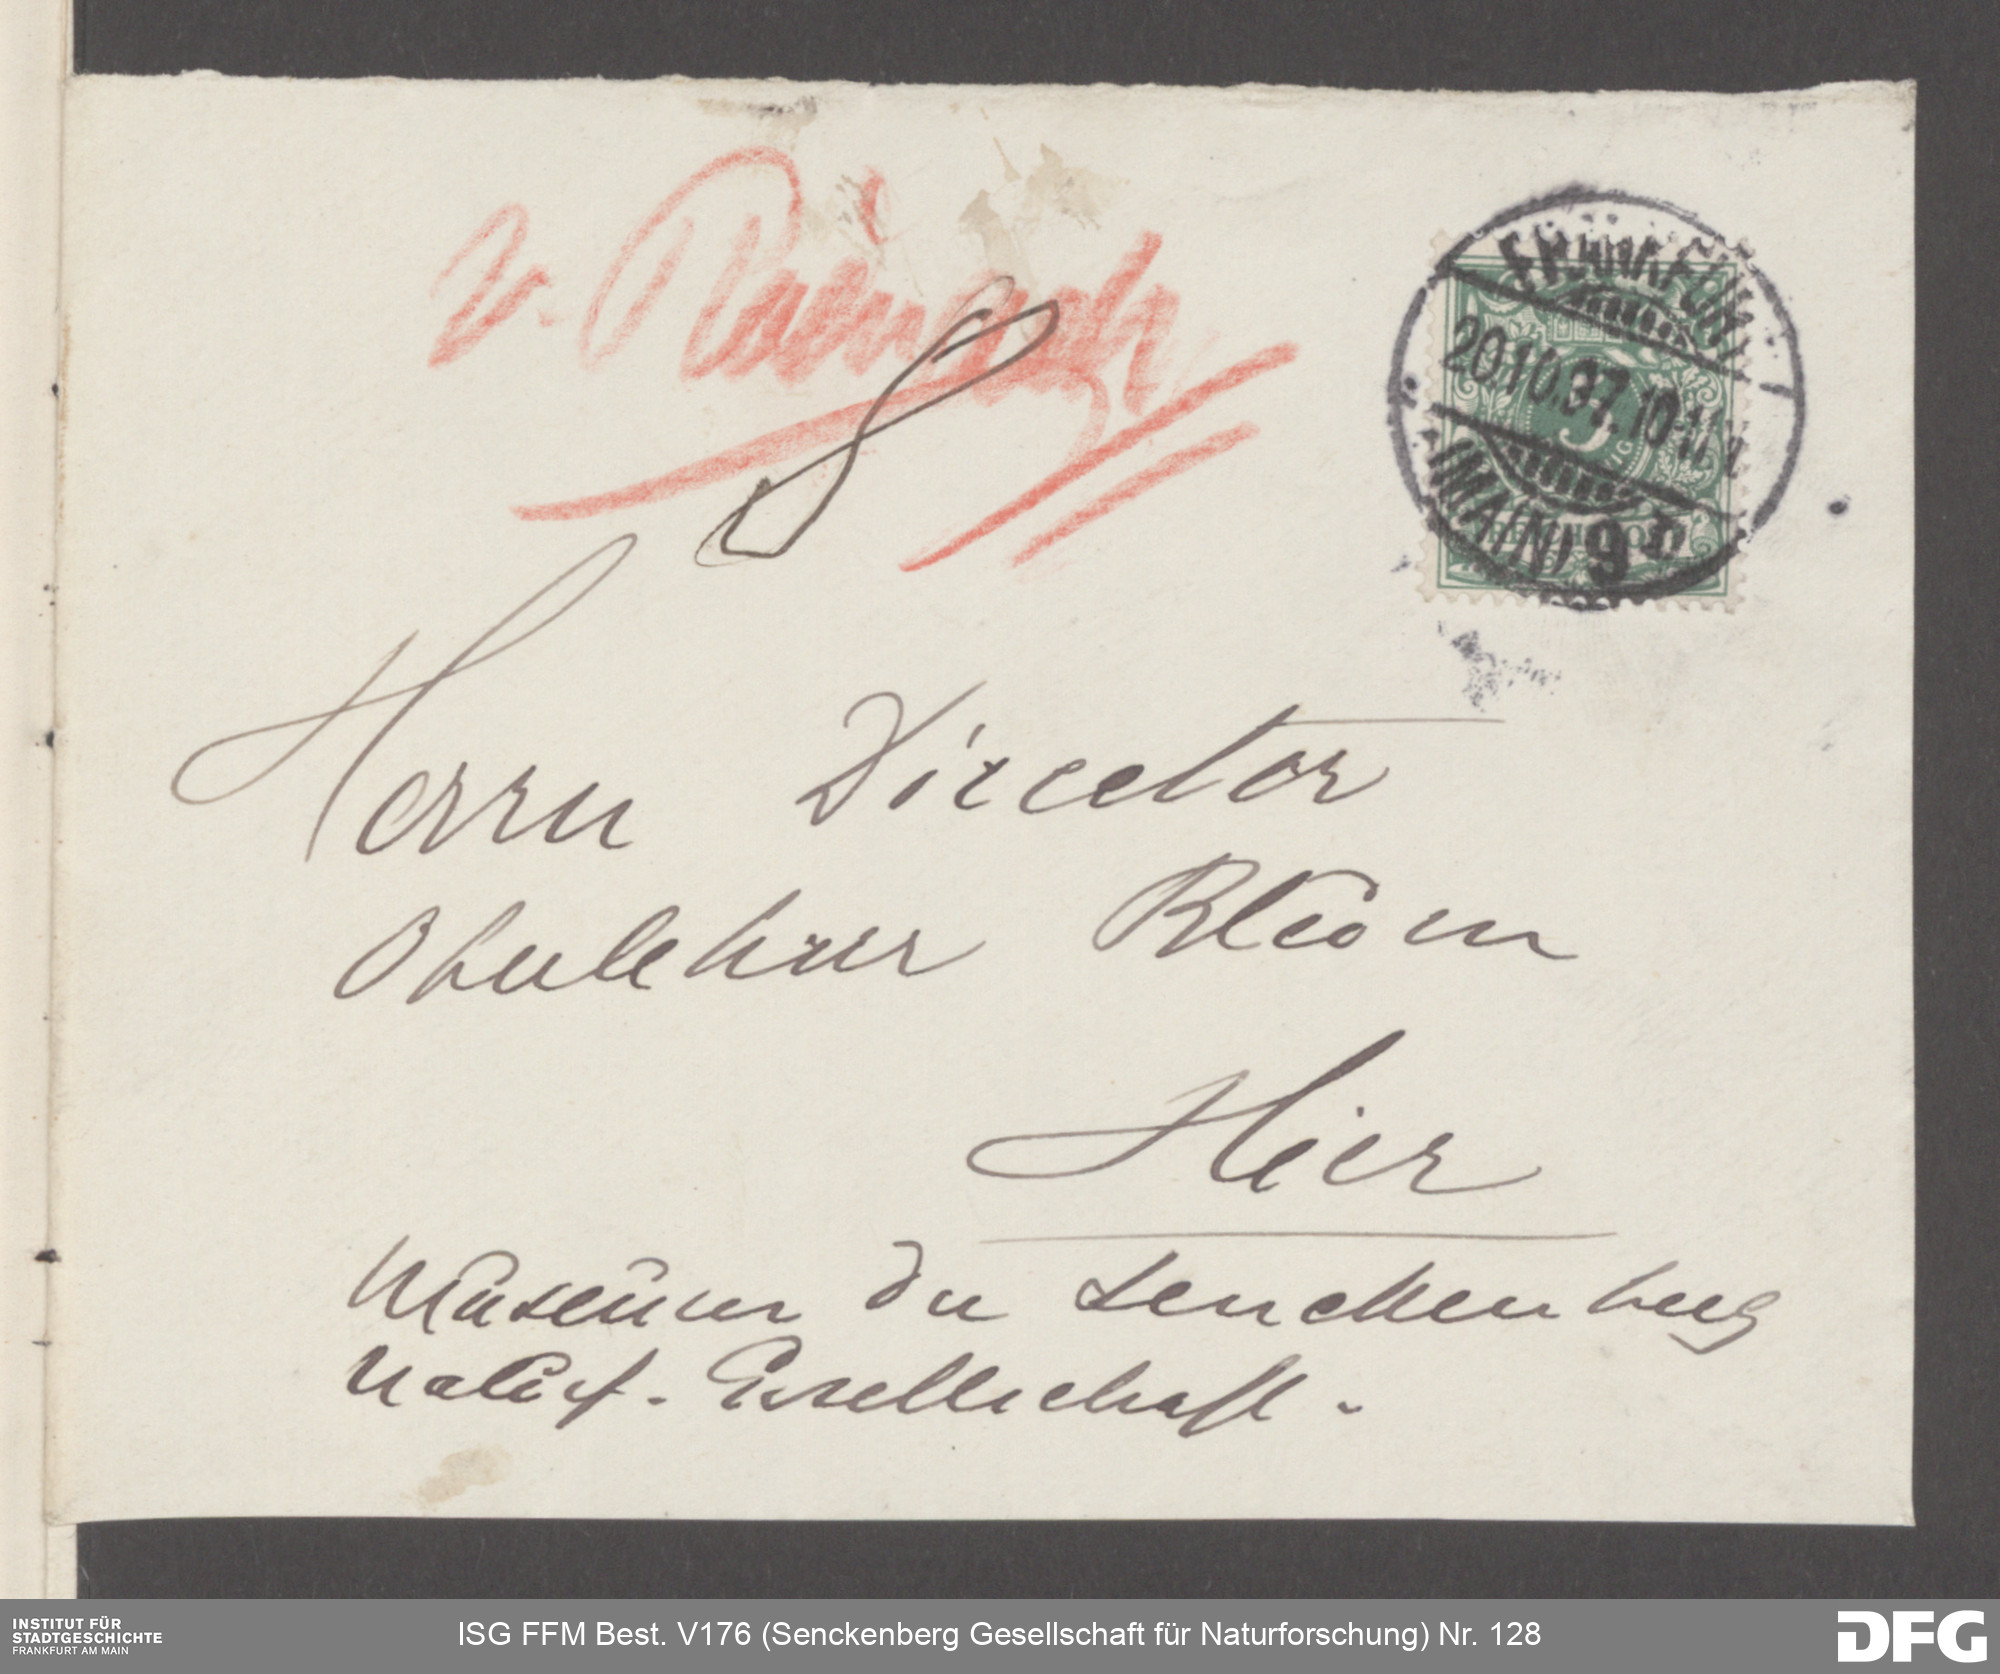 v. Reinach
8
FRANKFURT
20.10.97. 10-11V.
(MAIN) 9
5
REICHSPOST
Herrn Director
Oberlehrer Blum
Hier
Museum der Senckenberg
Naturf. Gesellschaft.
INSTITUT FÜR
STADTGESCHICHTE
FRANKFURT AM MAIN
ISG FFM Best. V176 (Senckenberg Gesellschaft für Naturforschung) Nr. 128
DFG